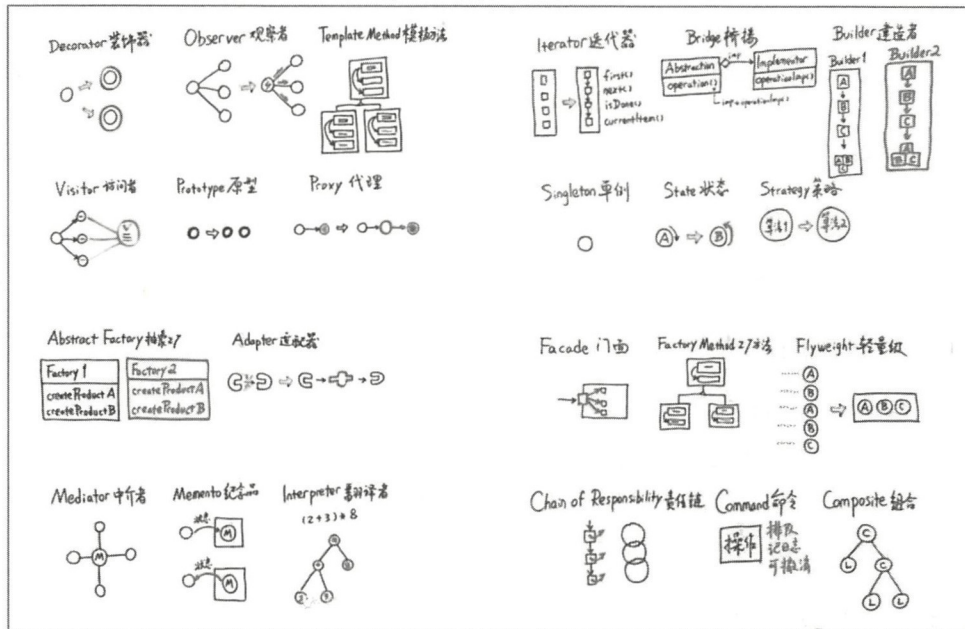 Decorator 装饰器
Observer 观察者
Template Method 模板方法
Visitor 访问者
V
Prototype 原型
Proxy 代理
Abstract Factory 抽象工厂
Factory 1
createProduct A
createProduct B
Factory 2
createProduct A
createProduct B
Adapter 适配器
Mediator 中介者
M
Memento 纪念品
状态
M
状态
M
Interpreter 翻译者
(2+3)*8
Iterator 迭代器
first()
next()
isDone()
currentItem()
Bridge 桥接
Abstraction
operation()
imp
Implementor
operationImp()
imp→operationImp()
Builder 建造者
Builder1
A
B
C
A B
C
Builder2
A
B
C
A
B C
Singleton 单例
State 状态
A
B
Strategy 策略
算法1
算法2
Facade 门面
Factory Method 工厂方法
Flyweight 轻量级
A
B
A
B
C
A B C
Chain of Responsibility 责任链
Command 命令
操作
排队
记日志
可撤消
Composite 组合
C
L C
L L